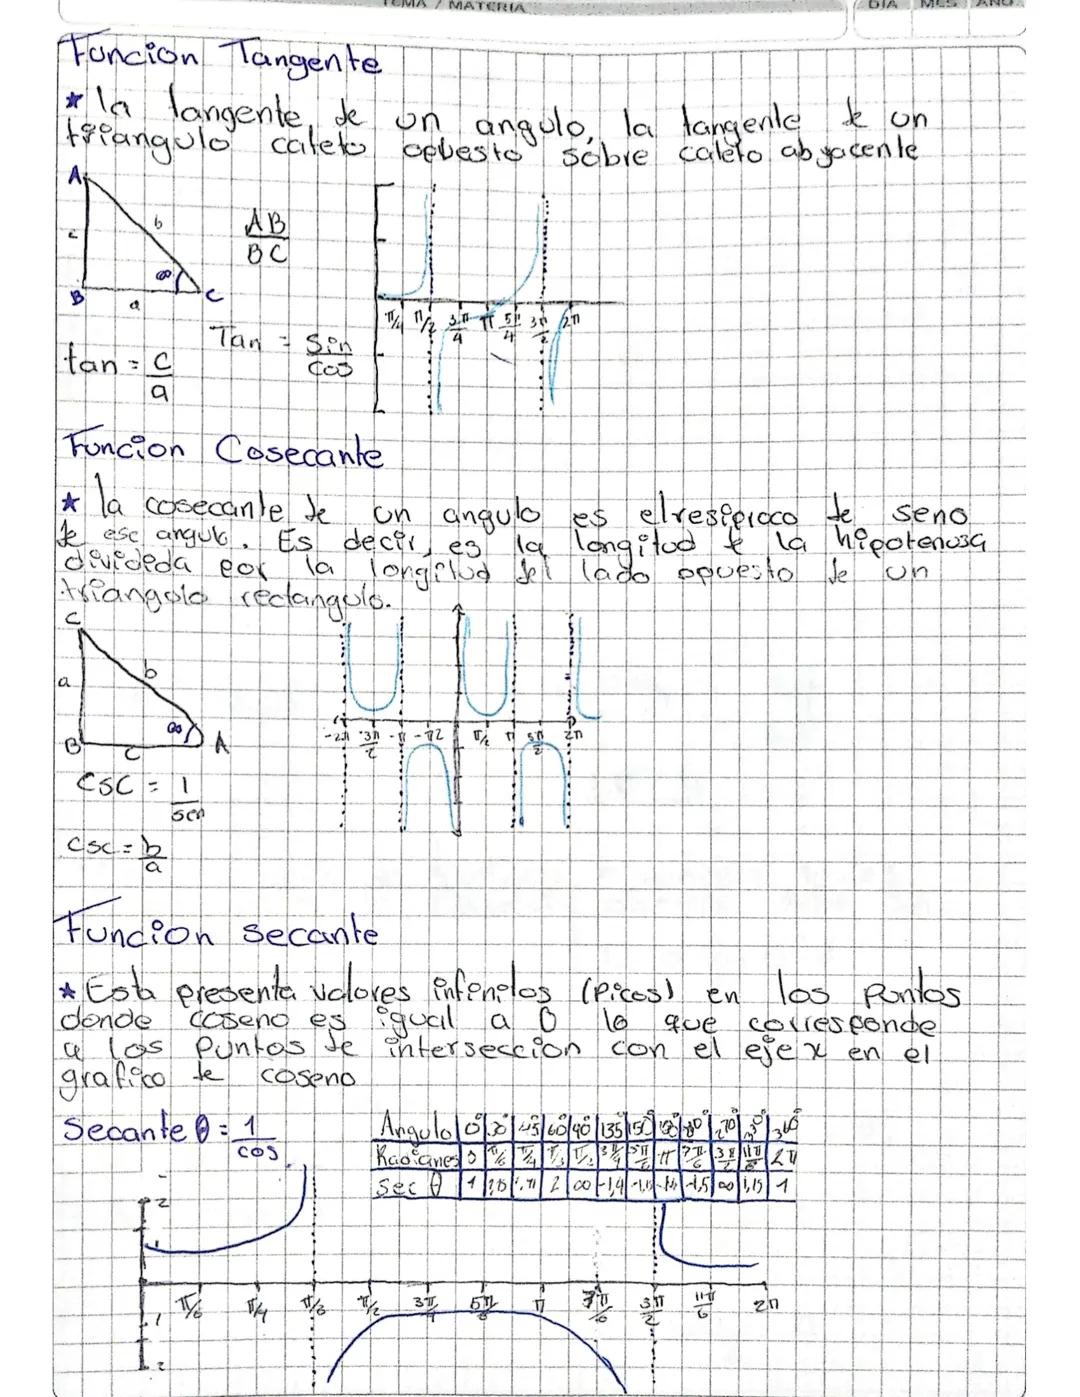 TEMA / MATERIA
DIA MES AÑO
Funcion Tangente
* la tangente de un angulo, la tangente de un
triangulo cateto opuesto sobre cateto abyacente
A
c
b
∞
B
a
C
AB
BC
π/4 π/2 3π/4 π 5π/4 3π/2 2π
Tan = Sin
Cos
tan = c
a
Funcion Cosecante
* la cosecante de un angulo es el resiproco de seno
de ese angulo. Es decir, es la longitud de la hipotenusa
divideda por la longitud del lado opuesto de un
triangolo rectangulo.
C
a
b
∞
B
c
A
-2π -3π/2 -π -π2 π/2 π 5π/2 2π
CSC = 1
sen
Csc = b
a
Funcion secante
* Esta presenta valores infinitos (Picos) en los Puntos
donde coseno es igual a 0 lo que corresponde
a los Puntos de interseccion con el eje x en el
grafico de coseno
Secante θ = 1
cos
Angulo 0° 30° 45° 60° 90° 135° 150° 180° 270° 330° 360°
Radianes 0 π/6 π/4 π/3 π/2 3π/4 5π/6 π 7π/6 3π/2 11π/6 2π
Sec θ 1 2 ∞ -1,4 -1,5 ∞ 1,15 1
2
1
π/6 π/4 π/3 π/2 3π/4 5π/6 π 7π/6 3π/2 11π/6 2π
1
2